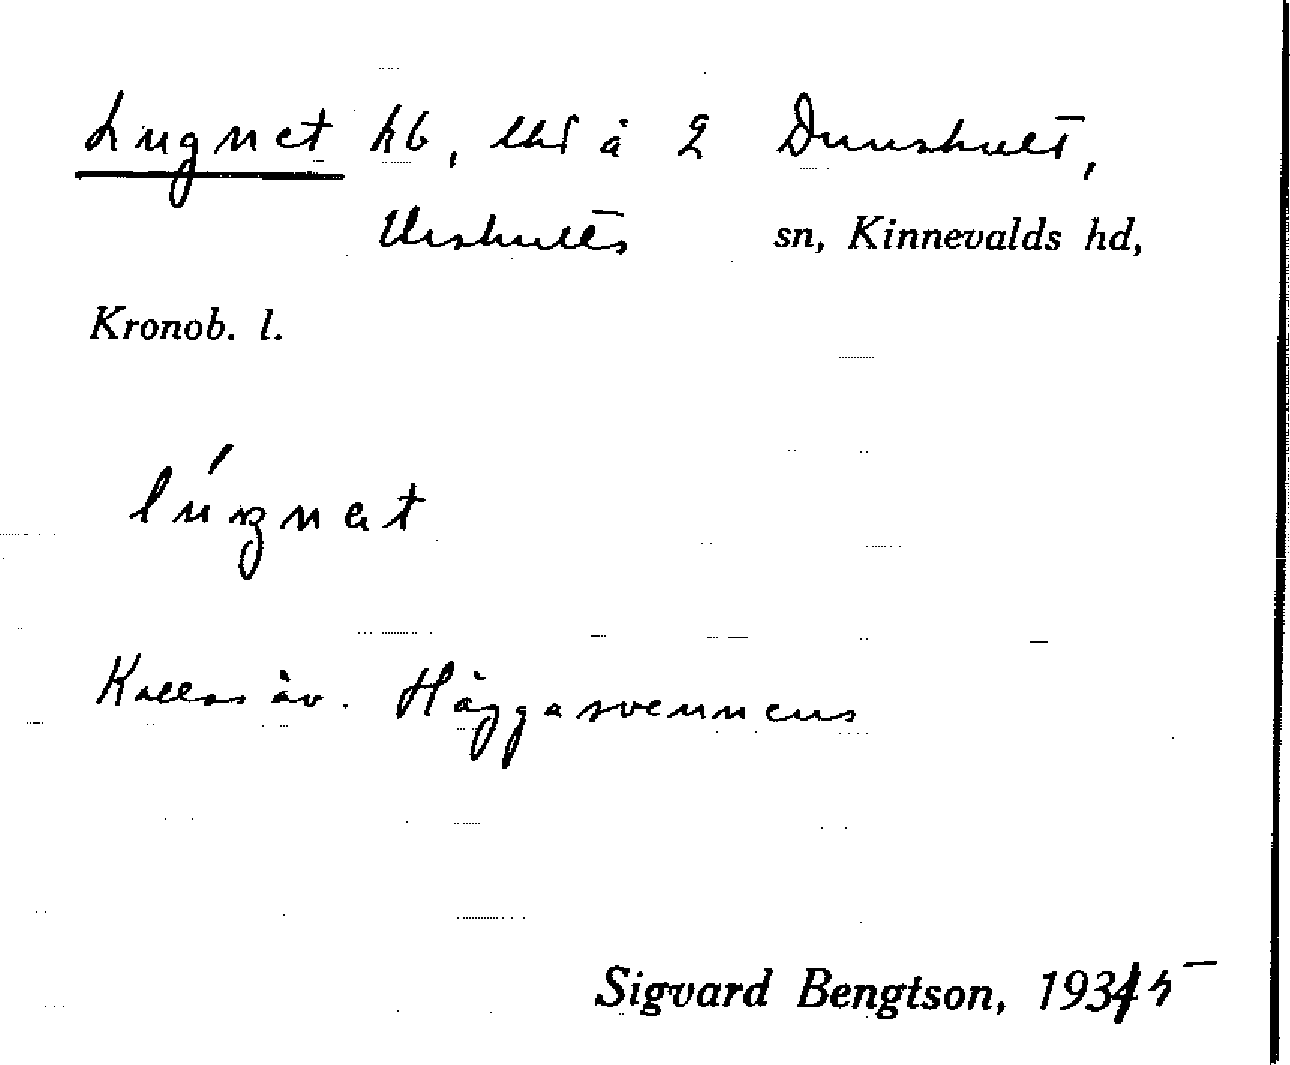 Lugnet hb, lht å 2 Dunshult,
Urshults sn, Kinnevalds hd,
Kronob. l.
lúgnat
Kallas äv. Häggasvennens
Sigvard Bengtson, 1935